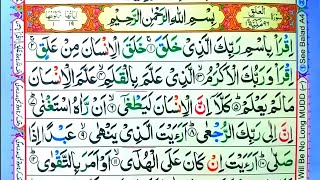 بِسْمِ اللهِ الرَّحْمٰنِ الرَّحِيْمِ
اِقْرَاْ بِاسْمِ رَبِّكَ الَّذِىْ خَلَقَ ۚ خَلَقَ الْاِنْسَانَ مِنْ عَلَقٍ ۚ
اِقْرَاْ وَرَبُّكَ الْاَكْرَمُ ۙ الَّذِىْ عَلَّمَ بِالْقَلَمِ ۙ عَلَّمَ الْاِنْسَانَ
مَا لَمْ يَعْلَمْ ؕ كَلَّاۤ اِنَّ الْاِنْسَانَ لَيَطْغٰٓى ۙ اَنْ رَّاٰهُ اسْتَغْنٰى ؕ
اِنَّ اِلٰى رَبِّكَ الرُّجْعٰى ؕ اَرَءَيْتَ الَّذِىْ يَنْهٰى ۙ عَبْدًا اِذَا
صَلّٰى ؕ اَرَءَيْتَ اِنْ كَانَ عَلَى الْهُدٰٓى ۙ اَوْ اَمَرَ بِالتَّقْوٰى ؕ
See Balad A4
Will Be No Long MUDD (~)